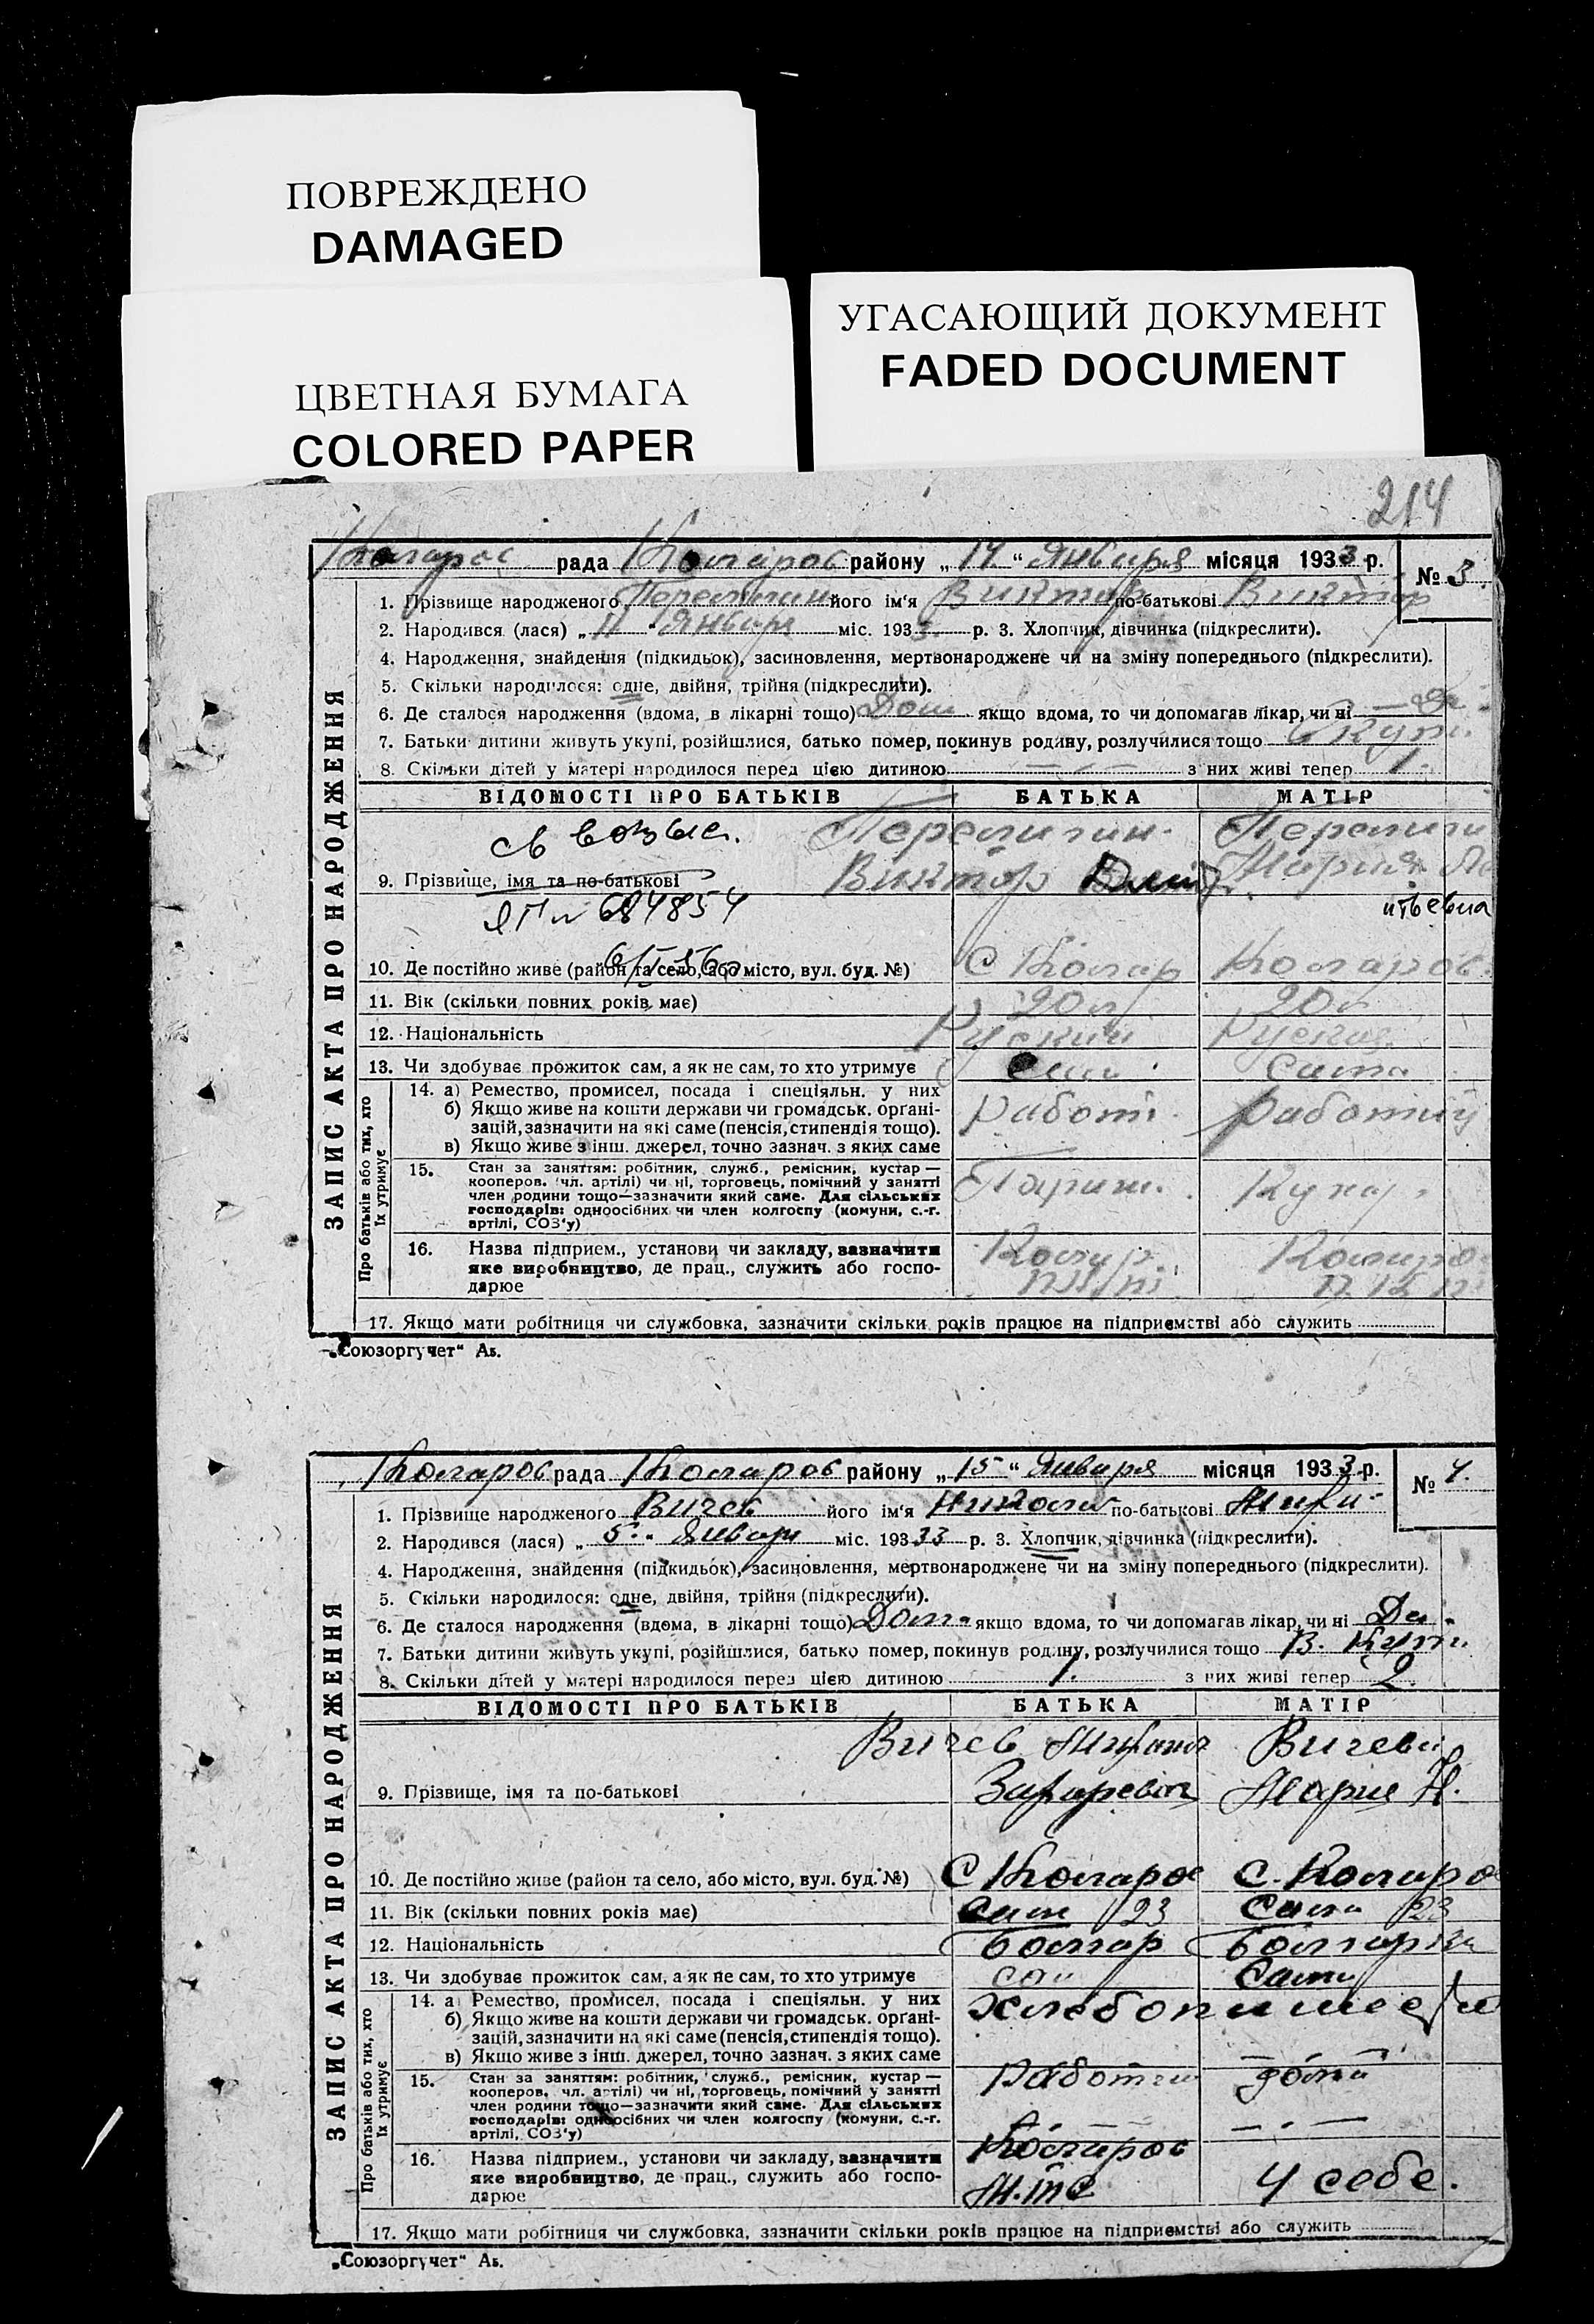 ПОВРЕЖДЕНО
DAMAGED
ЦВЕТНАЯ БУМАГА
COLORED PAPER
УГАСАЮЩИЙ ДОКУМЕНТ
FADED DOCUMENT
214
ЗАПИС АКТА ПРО НАРОДЖЕННЯ
рада району „14“ Января місяця 1933 р.
№ 3.
1. Прізвище народженого його ім'я Виктор по-батькові Виктор
2. Народився (лася) „11“ Января міс. 1933 р. 3. Хлопчик, дівчинка (підкреслити).
4. Народження, знайдення (підкидьок), засиновлення, мертвонароджене чи на зміну попереднього (підкреслити).
5. Скільки народилося: одне, двійня, трійня (підкреслити).
6. Де сталося народження (вдома, в лікарні тощо) Дом якщо вдома, то чи допомагав лікар, чи ні
7. Батьки дитини живуть укупі, розійшлися, батько помер, покинув родину, розлучилися тощо
8. Скільки дітей у матері народилося перед цією дитиною з них живі тепер 1.
ВІДОМОСТІ ПРО БАТЬКІВ БАТЬКА МАТІР
9. Прізвище, імя та по-батькові Виктор Дмит Мария
ЯП № 684854
10. Де постійно живе (район та село, або місто, вул. буд. №) С Колар Коларов.
11. Вік (скільки повних років має) 20 л 20 л
12. Національність Руский Руская
13. Чи здобуває прожиток сам, а як не сам, то хто утримує Сам Сама
Про батьків або тих, хто їх утримує
14. а) Ремество, промисел, посада і спеціяльн. у них
б) Якщо живе на кошти держави чи громадськ. органі-
зацій, зазначити на які саме (пенсія, стипендія тощо).
в) Якщо живе з інш. джерел, точно зазнач. з яких саме
Работ.
15. Стан за заняттям: робітник, служб., ремісник, кустар —
кооперов. чл. артілі) чи ні, торговець, помічний у занятті
член родини тощо—зазначити який саме. Для сільських
господарів: одноосібних чи член колгоспу (комуни, с.-г.
артілі, СОЗ'у)
Кухар
16. Назва підприєм., установи чи закладу, зазначити
яке виробництво, де прац., служить або госпо-
дарює
17. Якщо мати робітниця чи службовка, зазначити скільки років працює на підприємстві або служить
„Союзоргучет“ Аб.
ЗАПИС АКТА ПРО НАРОДЖЕННЯ
Коларов рада Коларов району „15“ Января місяця 1933 р.
№ 4.
1. Прізвище народженого Вичев його ім'я Николай по-батькові
2. Народився (лася) „5.“ Января міс. 19333 р. 3. Хлопчик, дівчинка (підкреслити).
4. Народження, знайдення (підкидьок), засиновлення, мертвонароджене чи на зміну попереднього (підкреслити).
5. Скільки народилося: одне, двійня, трійня (підкреслити).
6. Де сталося народження (вдома, в лікарні тощо) Дом якщо вдома, то чи допомагав лікар, чи ні
7. Батьки дитини живуть укупі, розійшлися, батько помер, покинув родину, розлучилися тощо В. Куп.
8. Скільки дітей у матері народилося перед цією дитиною 1. з них живі тепер 2.
ВІДОМОСТІ ПРО БАТЬКІВ БАТЬКА МАТІР
Вичев Вичева
9. Прізвище, імя та по-батькові Захаревич Мария Н.
10. Де постійно живе (район та село, або місто, вул. буд. №) С Коларов с. Коларов
11. Вік (скільки повних років має) сам 23 сама 23
12. Національність болгар болгарка
13. Чи здобуває прожиток сам, а як не сам, то хто утримує сам сама
Про батьків або тих, хто їх утримує
14. а) Ремество, промисел, посада і спеціяльн. у них
б) Якщо живе на кошти держави чи громадськ. органі-
зацій, зазначити на які саме (пенсія, стипендія тощо).
в) Якщо живе з інш. джерел, точно зазнач. з яких саме
15. Стан за заняттям: робітник, служб., ремісник, кустар —
кооперов. чл. артілі) чи ні, торговець, помічний у занятті
член родини тощо—зазначити який саме. Для сільських
господарів: одноосібних чи член колгоспу (комуни, с.-г.
артілі, СОЗ'у)
Работник дома
16. Назва підприєм., установи чи закладу, зазначити
яке виробництво, де прац., служить або госпо-
дарює
Коларов М.Т.С У себе.
17. Якщо мати робітниця чи службовка, зазначити скільки років працює на підприємстві або служить
„Союзоргучет“ Аб.